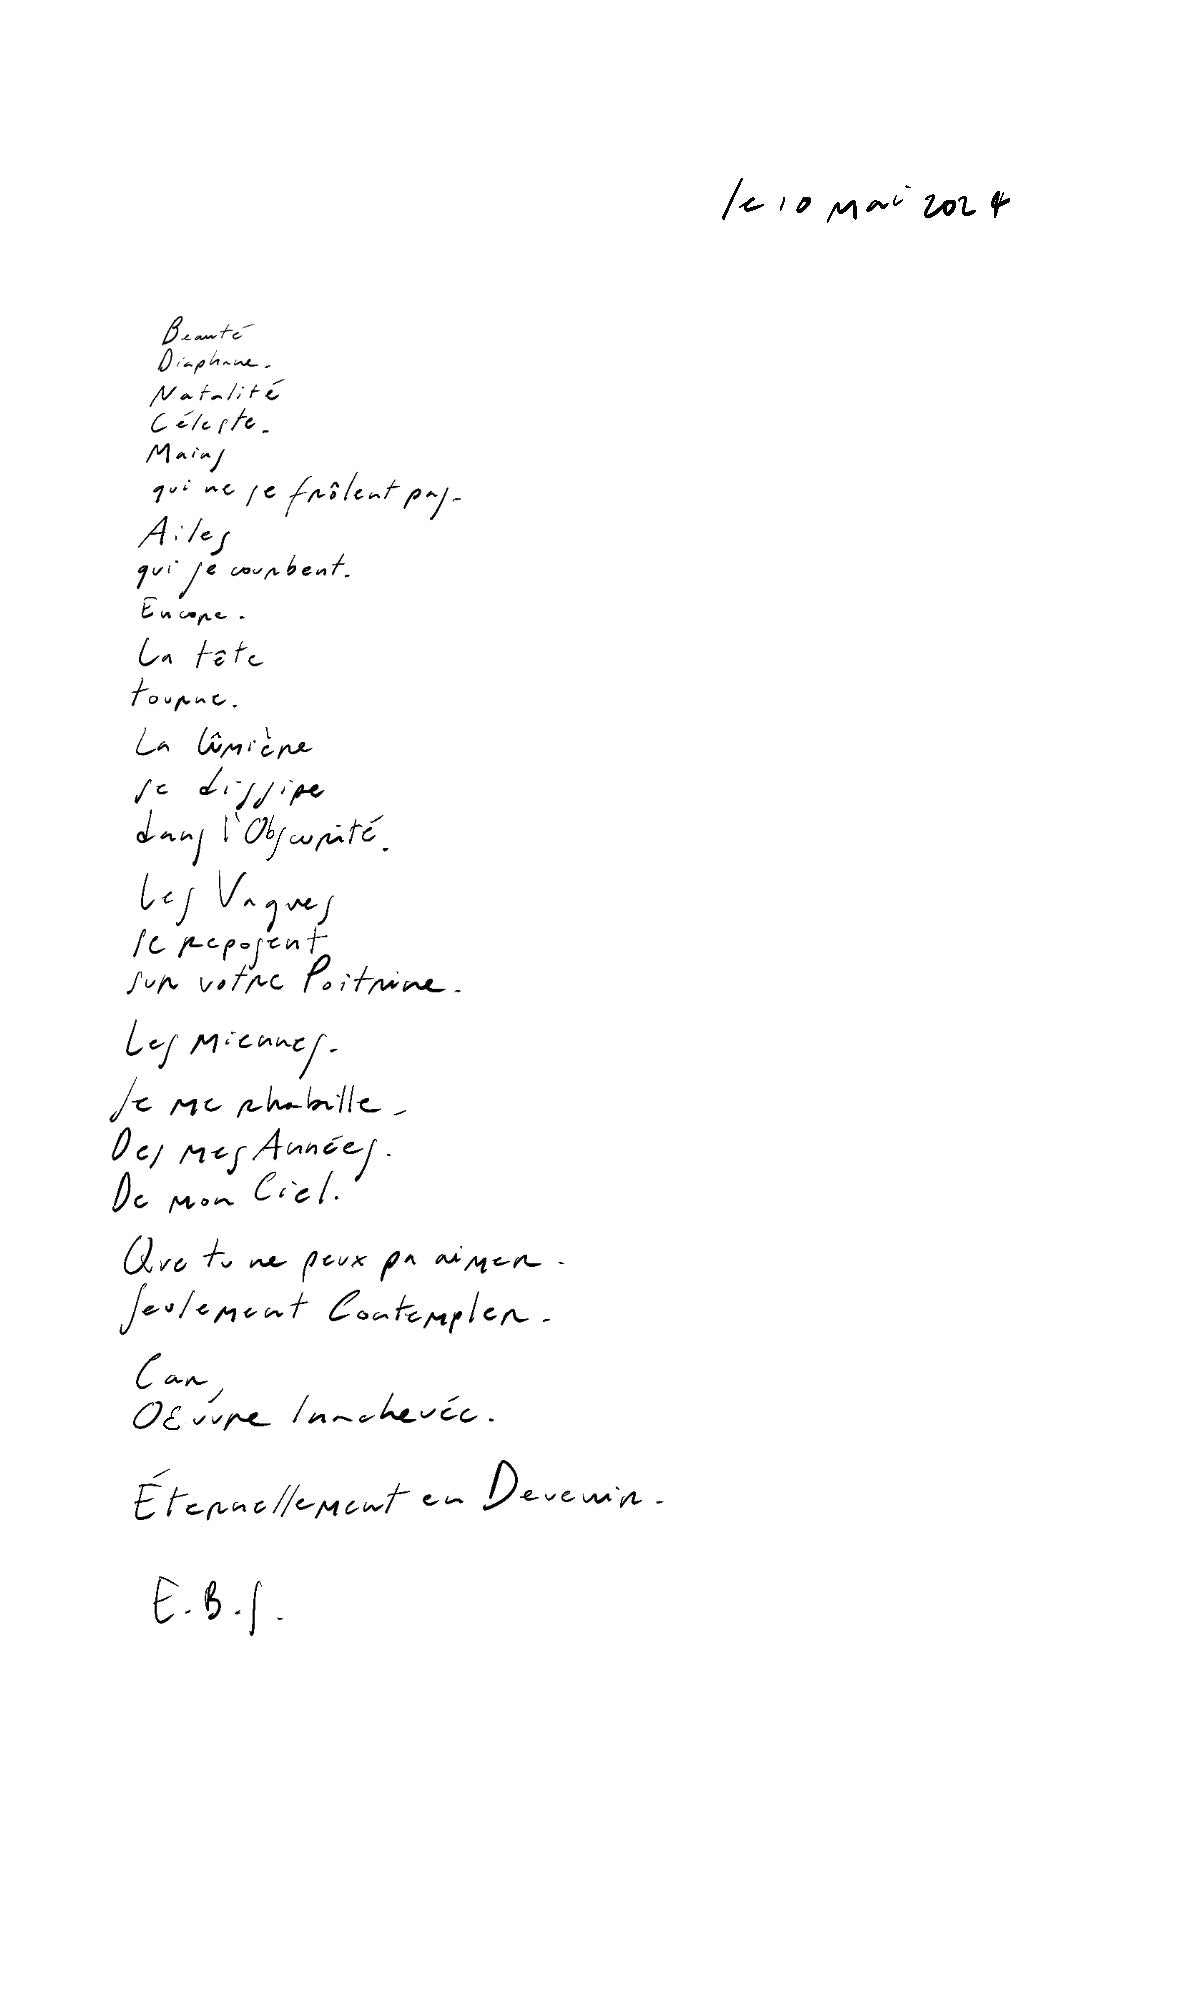 le 10 mai 2024
Beauté
Diaphane.
Natalité
Céleste.
Mains
qui ne se frôlent pas.
Ailes
qui se courbent.
Encore.
La tête
tourne.
La lûmière
se dissipe
dans l'Obscurité.
Les Vagues
se reposent
sur votre Poitrine.
Les miennes.
Je me rhabille.
Des mes Années.
De mon Ciel.
Que tu ne peux pa aimer.
Seulement Contempler.
Car,
OEuvre Inachevée.
Éternellement en Devenir.
E.B.S.